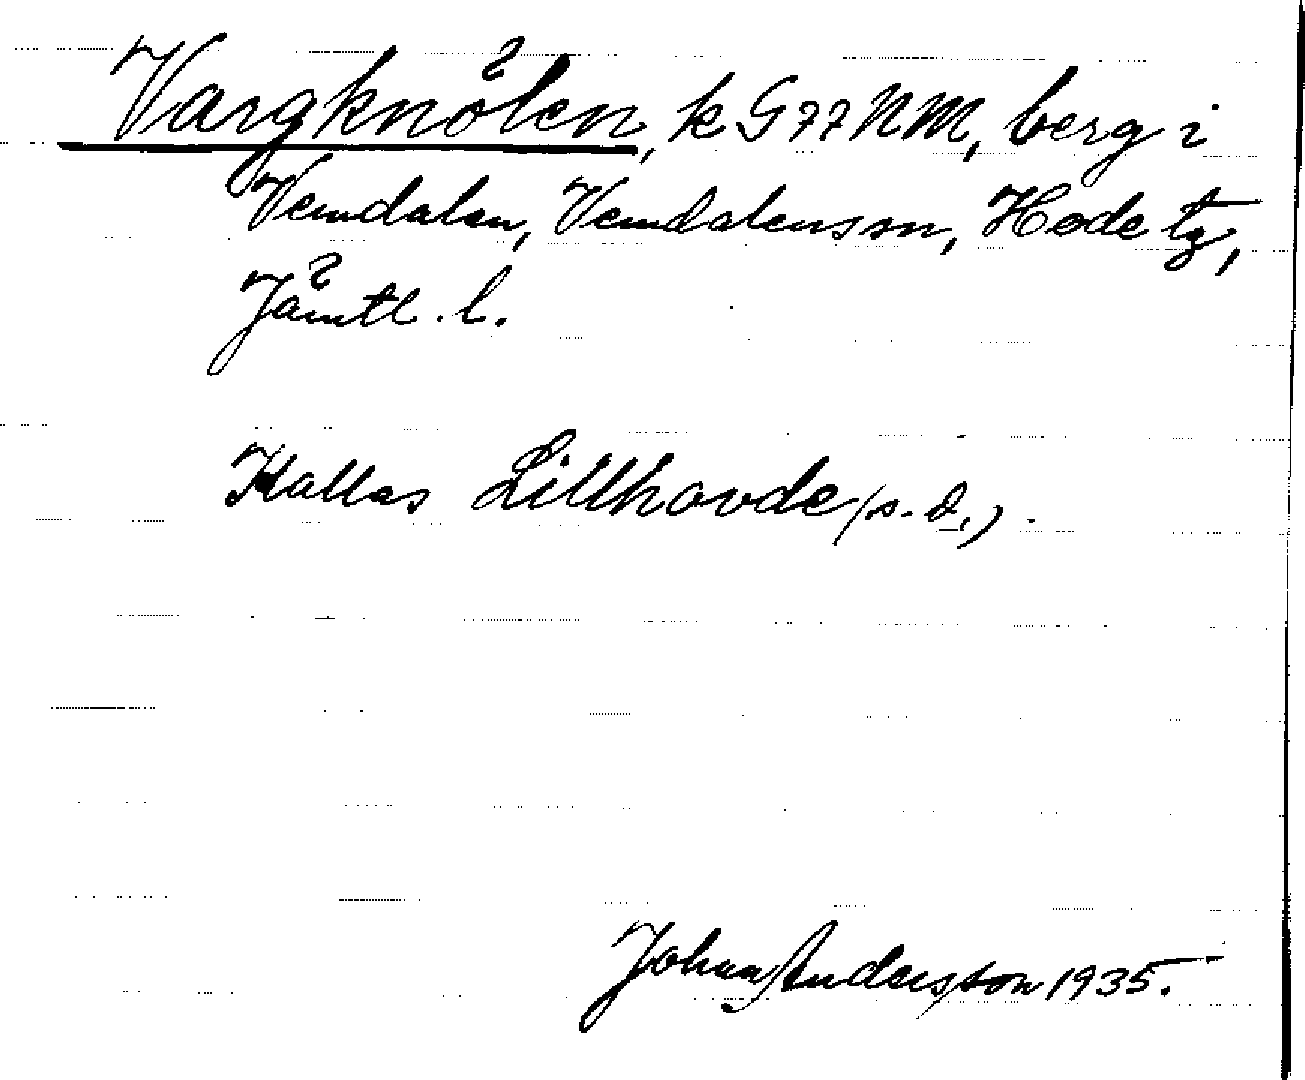 Vargknölen, k G 77 NM, berg i
Vemdalen, Vemdalens sn, Hede tg,
Jämtl. l.
Kallas Lillhovde (s. d.).
Johan Andersson 1935.